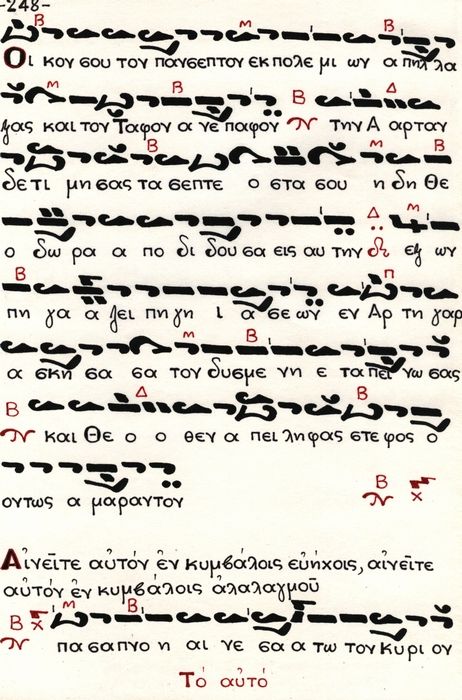 -248-
Οι κου σου τον παν σεπτον εκ πολε μι ων α πηλ λα
ξας και τον Ταφον α νε παφον την Α αρταν
δε τι μη σας τα σεπτε ο στα σου η δη Θε
ο δω ρα α πο δι δου σα εις αυ την εξ ων
πη γα α ζει πη γη ι α σε ων εν Αρ τη γαρ
α σκη σα σα τον δυσμε νη ε τα πει νω σας
και Θε ο ο θεν α πει λη φας στε φος ο
οντως α μαραντον
Αἰνεῖτε αὐτόν ἐν κυμβάλοις εὐήχοις, αἰνεῖτε
αὐτόν ἐν κυμβάλοις ἀλαλαγμοῦ
πα σα πνο η αι νε σα α τω τον Κυρι ον
Τό αὐτό